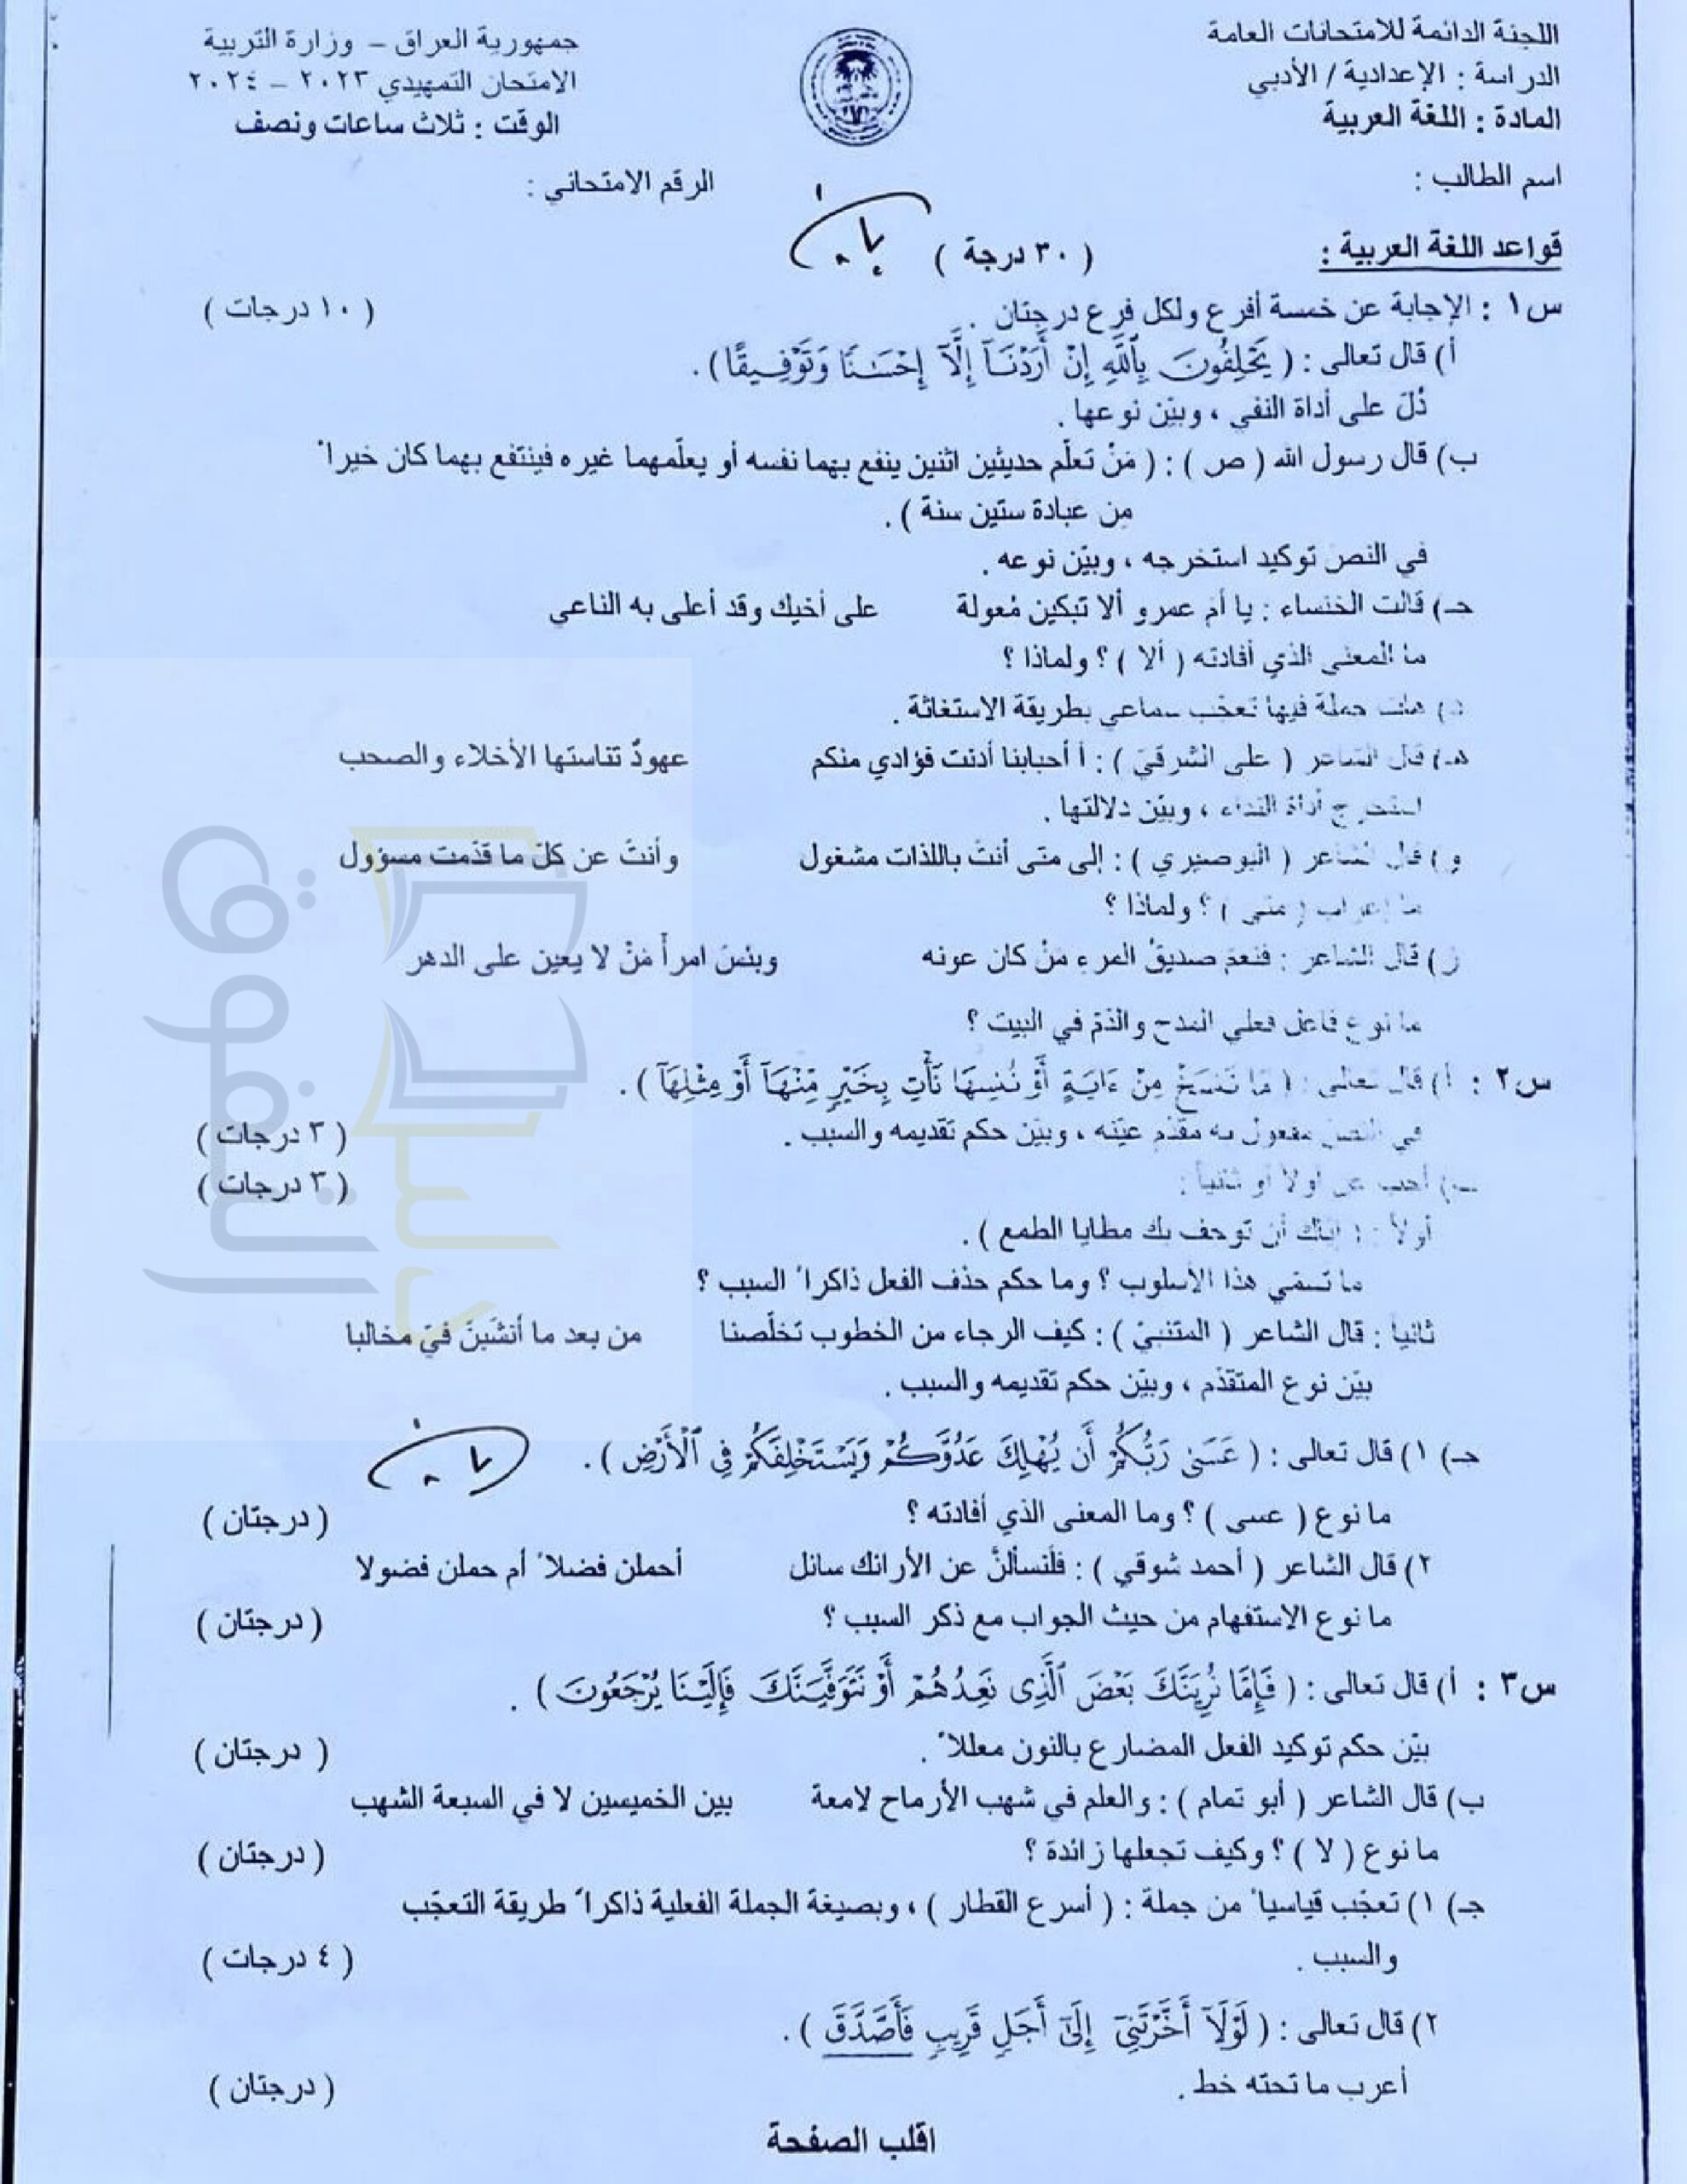 اللجنة الدائمة للامتحانات العامة
الدراسة : الإعدادية / الأدبي
المادة : اللغة العربية
جمهورية العراق - وزارة التربية
الامتحان التمهيدي ٢٠٢٣ - ٢٠٢٤
الوقت : ثلاث ساعات ونصف
اسم الطالب :
الرقم الامتحاني :
قواعد اللغة العربية : ( ٣٠ درجة )
س١ : الإجابة عن خمسة أفرع ولكل فرع درجتان . ( ١٠ درجات )
أ) قال تعالى : ( يَحْلِفُونَ بِٱللَّهِ إِنْ أَرَدْنَآ إِلَّآ إِحْسَـٰنًا وَتَوْفِيقًا ) .
دُلّ على أداة النفي ، وبيّن نوعها .
ب) قال رسول الله ( ص ) : ( مَنْ تعلّم حديثين اثنين ينفع بهما نفسه أو يعلّمهما غيره فينتفع بهما كان خيراً
من عبادة ستين سنة ) .
في النص توكيد استخرجه ، وبيّن نوعه .
جـ) قالت الخنساء : يا أم عمرو ألا تبكين مُعولة على أخيك وقد أعلى به الناعي
ما المعنى الذي أفادته ( ألا ) ؟ ولماذا ؟
د) هات جملة فيها تعجّب سماعي بطريقة الاستغاثة .
هـ) قال الشاعر ( علي الشرقيّ ) : أ أحبابنا أدنت فؤادي منكم عهودٌ تناستها الأخلاء والصحب
استخرج أداة النداء ، وبيّن دلالتها .
و) قال الشاعر ( البوصيري ) : إلى متى أنتَ باللذات مشغول وأنتَ عن كلّ ما قدّمت مسؤول
ما إعراب ( متى ) ؟ ولماذا ؟
ز) قال الشاعر : فنعمَ صديقُ المرءِ مَنْ كان عونه وبئسَ امرأً مَنْ لا يعين على الدهر
ما نوع فاعل فعلي المدح والذمّ في البيت ؟
س٢ : أ) قال تعالى : ( مَا نَنسَخْ مِنْ ءَايَةٍ أَوْ نُنسِهَا نَأْتِ بِخَيْرٍ مِّنْهَآ أَوْ مِثْلِهَآ ) .
في النص مفعول به مقدّم عيّنه ، وبيّن حكم تقديمه والسبب . ( ٣ درجات )
ب) أجب عن أولاً أو ثانياً : ( ٣ درجات )
أولاً : ( إياك أن توجف بك مطايا الطمع ) .
ما تسمّي هذا الأسلوب ؟ وما حكم حذف الفعل ذاكراً السبب ؟
ثانياً : قال الشاعر ( المتنبيّ ) : كيف الرجاء من الخطوب تخلّصنا من بعد ما أنشَبنَ فيّ مخالبا
بيّن نوع المتقدّم ، وبيّن حكم تقديمه والسبب .
جـ) ١) قال تعالى : ( عَسَىٰ رَبُّكُمْ أَن يُهْلِكَ عَدُوَّكُمْ وَيَسْتَخْلِفَكُمْ فِي ٱلْأَرْضِ ) .
ما نوع ( عسى ) ؟ وما المعنى الذي أفادته ؟ ( درجتان )
٢) قال الشاعر ( أحمد شوقي ) : فلَنسألنّ عن الأرائك سائل أحملن فضلاً أم حملن فضولا
ما نوع الاستفهام من حيث الجواب مع ذكر السبب ؟ ( درجتان )
س٣ : أ) قال تعالى : ( فَإِمَّا نُرِيَنَّكَ بَعْضَ ٱلَّذِى نَعِدُهُمْ أَوْ نَتَوَفَّيَنَّكَ فَإِلَيْنَا يُرْجَعُونَ ) .
بيّن حكم توكيد الفعل المضارع بالنون معللاً . ( درجتان )
ب) قال الشاعر ( أبو تمام ) : والعلم في شهب الأرماح لامعة بين الخميسين لا في السبعة الشهب
ما نوع ( لا ) ؟ وكيف تجعلها زائدة ؟ ( درجتان )
جـ) ١) تعجّب قياسياً من جملة : ( أسرع القطار ) ، وبصيغة الجملة الفعلية ذاكراً طريقة التعجّب
والسبب . ( ٤ درجات )
٢) قال تعالى : ( لَوْلَآ أَخَّرْتَنِىٓ إِلَىٰٓ أَجَلٍ قَرِيبٍ فَأَصَّدَّقَ ) .
أعرب ما تحته خط . ( درجتان )
اقلب الصفحة